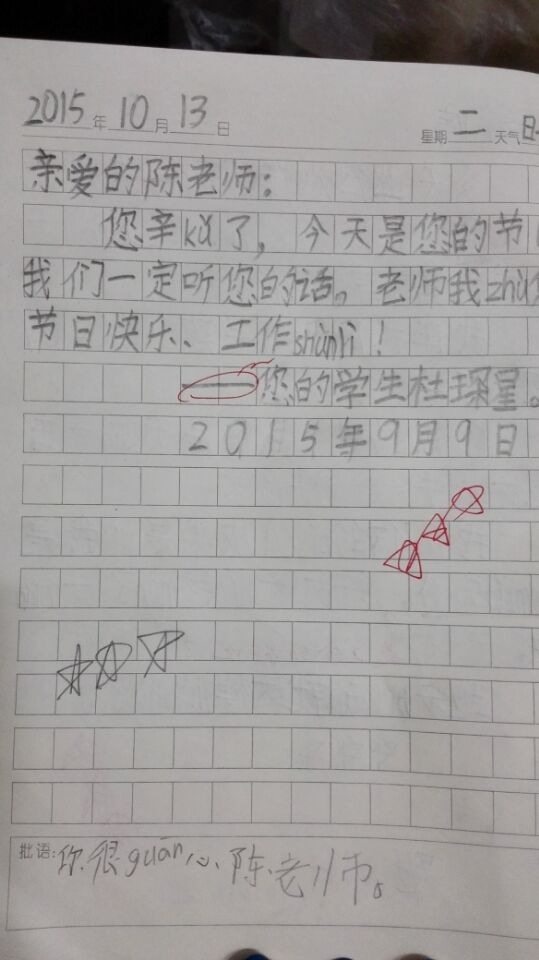 2015年10月13日 星期二 天气
亲爱的陈老师：
您辛kǔ了，今天是您的节
我们一定听您的话。老师我zhù
节日快乐、工作shùnlì！
——您的学生杜琛星。
2015年9月9日
批语：你很guān心陈老师。